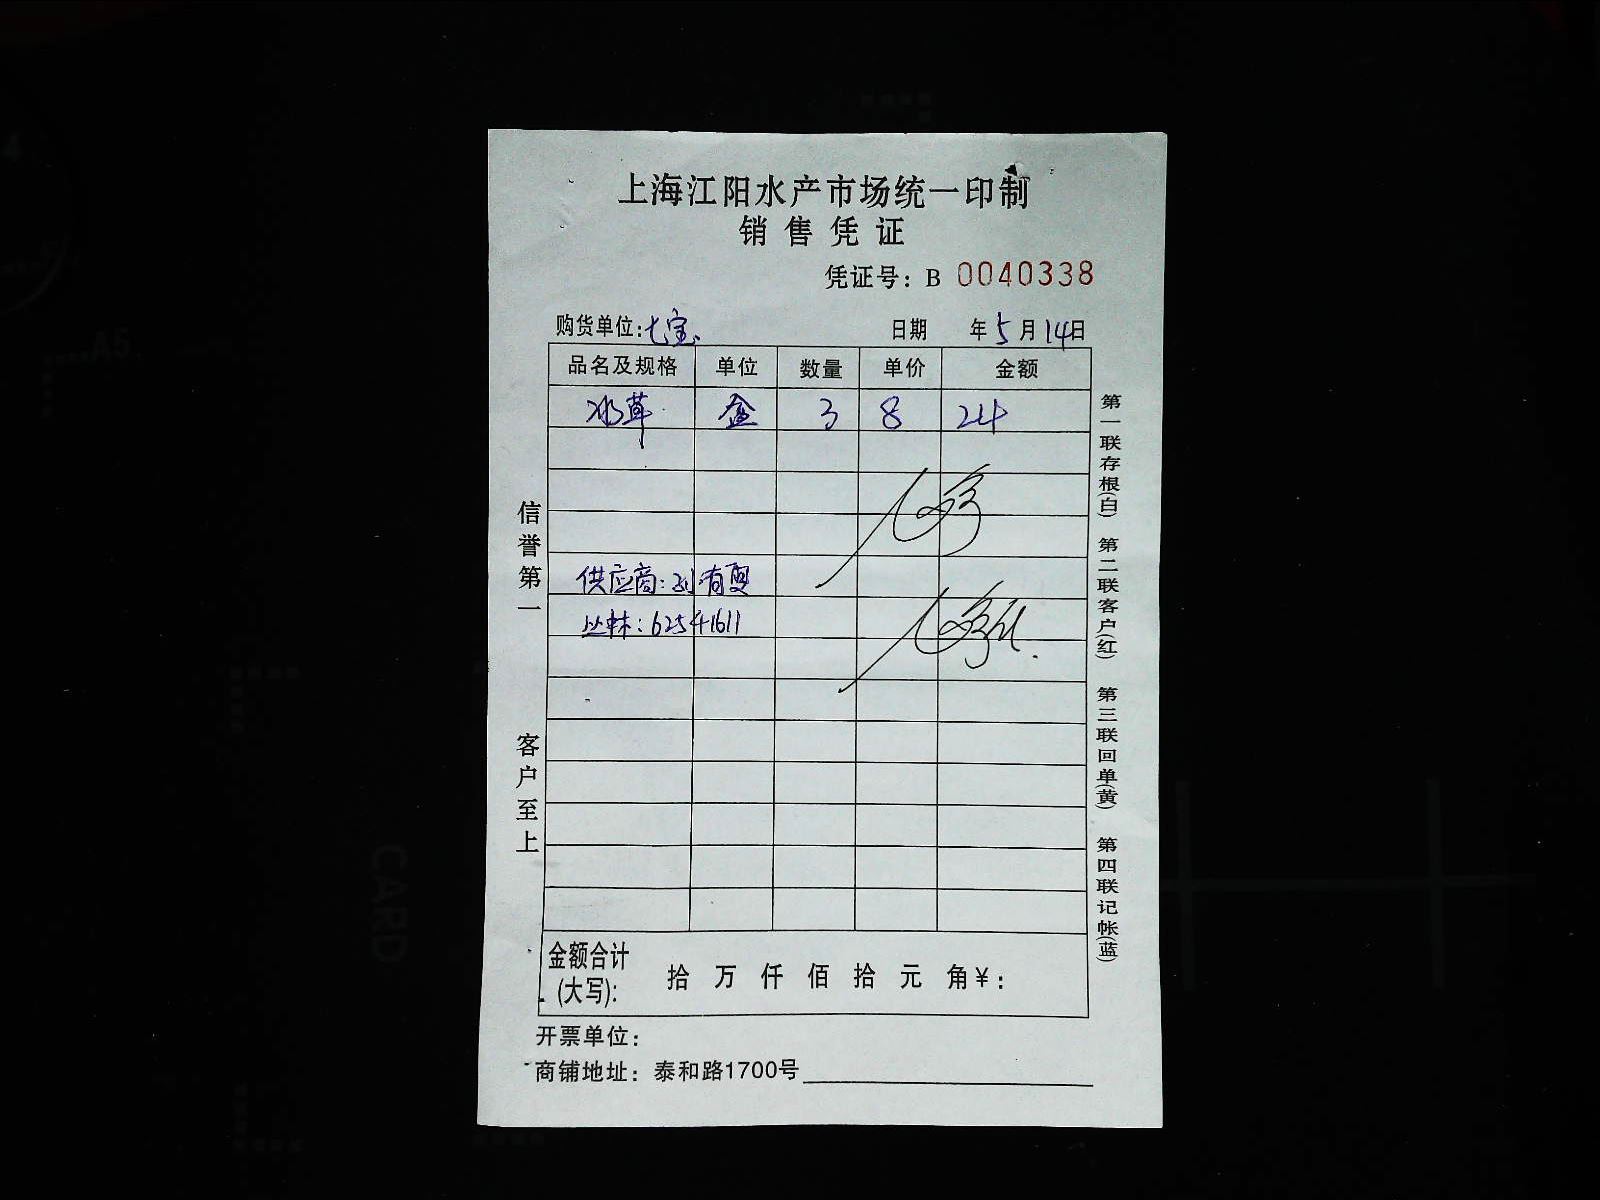 上海江阳水产市场统一印制
销售凭证
凭证号：B 0040338
购货单位：七宝
日期 年5月14日
品名及规格 单位 数量 单价 金额
冰草 盒 3 8 24
供应商：刘有
丛林：62541611
金额合计
(大写)： 拾 万 仟 佰 拾 元 角￥：
开票单位：
商铺地址：泰和路1700号
信誉第一 客户至上
第一联存根(白) 第二联客户(红) 第三联回单(黄) 第四联记帐(蓝)